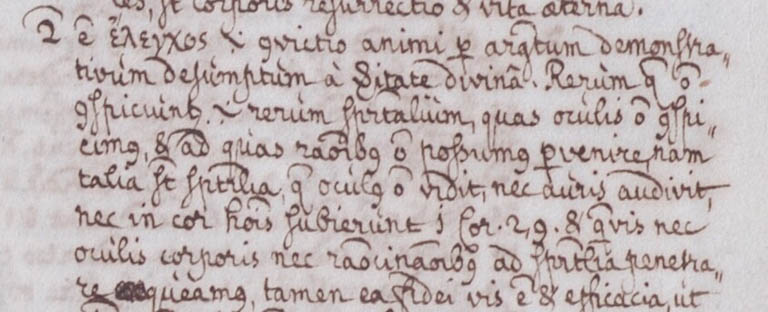 es, st̄ corporis resurrectio & vita æterna.
2 ē ἔλεγχος i. ꝯvictio animi ꝑ arg̃tum demonstra„
tivum desumptum à v̄itate divinâ. Rerum q̃ ō
ꝯspiciunt̃ i. rerum sprĩtalium, quas oculis ō ꝯspi„
cimꝯ, & ad quas raõibꝯ ō possumꝯ ꝑvenire, nam
talia st̄ sprĩtlia, q̃ oculꝯ ō vidit, nec auris audivit,
nec in cor hoĩs subierunt 1 Cor. 2,9. & q̃vis nec
oculis corporis nec raõcinaõibꝯ ad sprĩtlia penetra„
re queamꝯ, tamen ea fidei vis ē & efficacia, ut